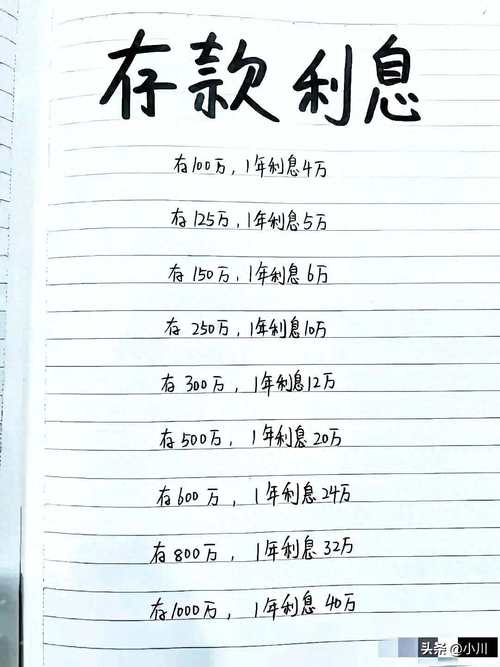 存款利息
存100万，1年利息4万
存125万，1年利息5万
存150万，1年利息6万
存 250万，1年利息10万
存 300万，1年利息12万
存500万，1年利息20万
存600万，1年利息24万
存800万，1年利息32万
存1000万，1年利息40万
头条 @小川